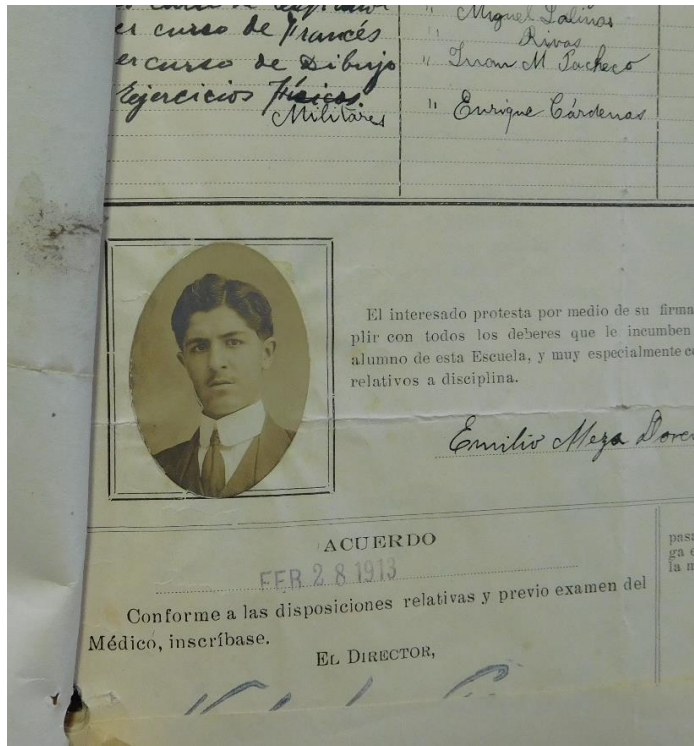 er curso de Francés
er curso de Dibujo
Ejercicios Físicos
Militares
Miguel Salinas
Rivas
" Juan M Pacheco
" Enrique Cárdenas
El interesado protesta por medio de su firma
plir con todos los deberes que le incumben
alumno de esta Escuela, y muy especialmente co
relativos a disciplina.
Emilio Meza
ACUERDO
FEB 28 1913
Conforme a las disposiciones relativas y previo examen del
Médico, inscríbase.
EL DIRECTOR,
pasa
ga e
la m